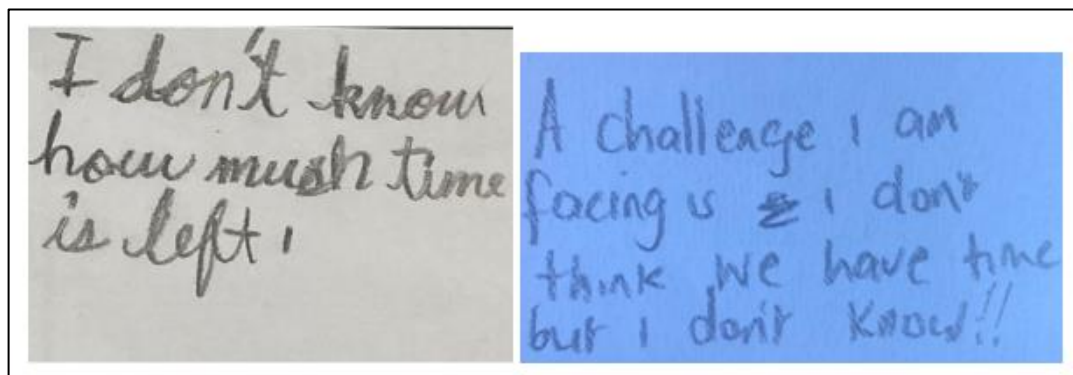 I don't know
how much time
is left,
A challenge i am
facing is i don't
think we have time
but i don't know!!